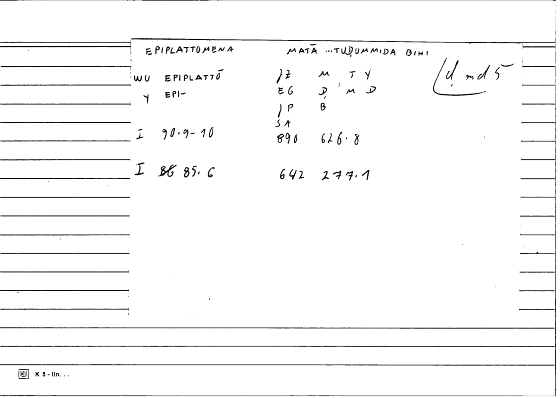 EPIPLATTOMENA MATĀ ... TUḌUMMIDA BIHI
WU EPIPLATTŌ M T Y
Y EPI- EG Ḍ, M D
B
SA
I 90.9-10 890 626.8
I 85.6 642 277.1
K 5-lin...